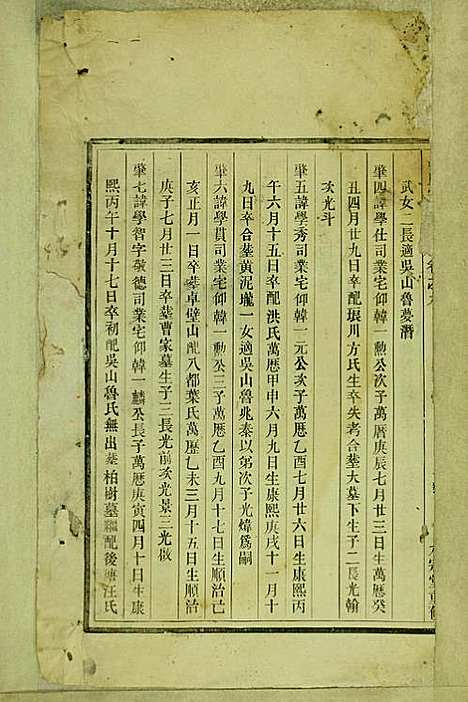 武女二長適吳山魯夢潛
肇四諱學仕司業宅仰韓一勳公次子萬曆庚辰七月廿三日生萬曆癸
丑四月廿九日卒配塘川方氏生卒失考合塟大墓下生子二長光翰
次光斗
肇五諱學秀司業宅仰韓一元公次子萬曆乙酉七月廿六日生康熙丙
午六月十五日卒配洪氏萬曆甲申六月九日生康熙庚戌十一月十
九日卒合塟黃泥壠一女適吳山魯兆泰以弟次子光煒爲嗣
肇六諱學貫司業宅仰韓一勳公三子萬曆乙酉九月十七日生順治己
亥正月一日卒塟卓壁山配八都葉氏萬曆乙未三月十五日生順治
庚子七月廿三日卒塟曹家墓生子三長光前次光景三光啟
肇七諱學智字敬德司業宅仰韓一麟公長子萬曆庚寅四月十日生康
熙丙午十月十七日卒初配吳山魯氏無出塟柏樹墓繼配後塘汪氏